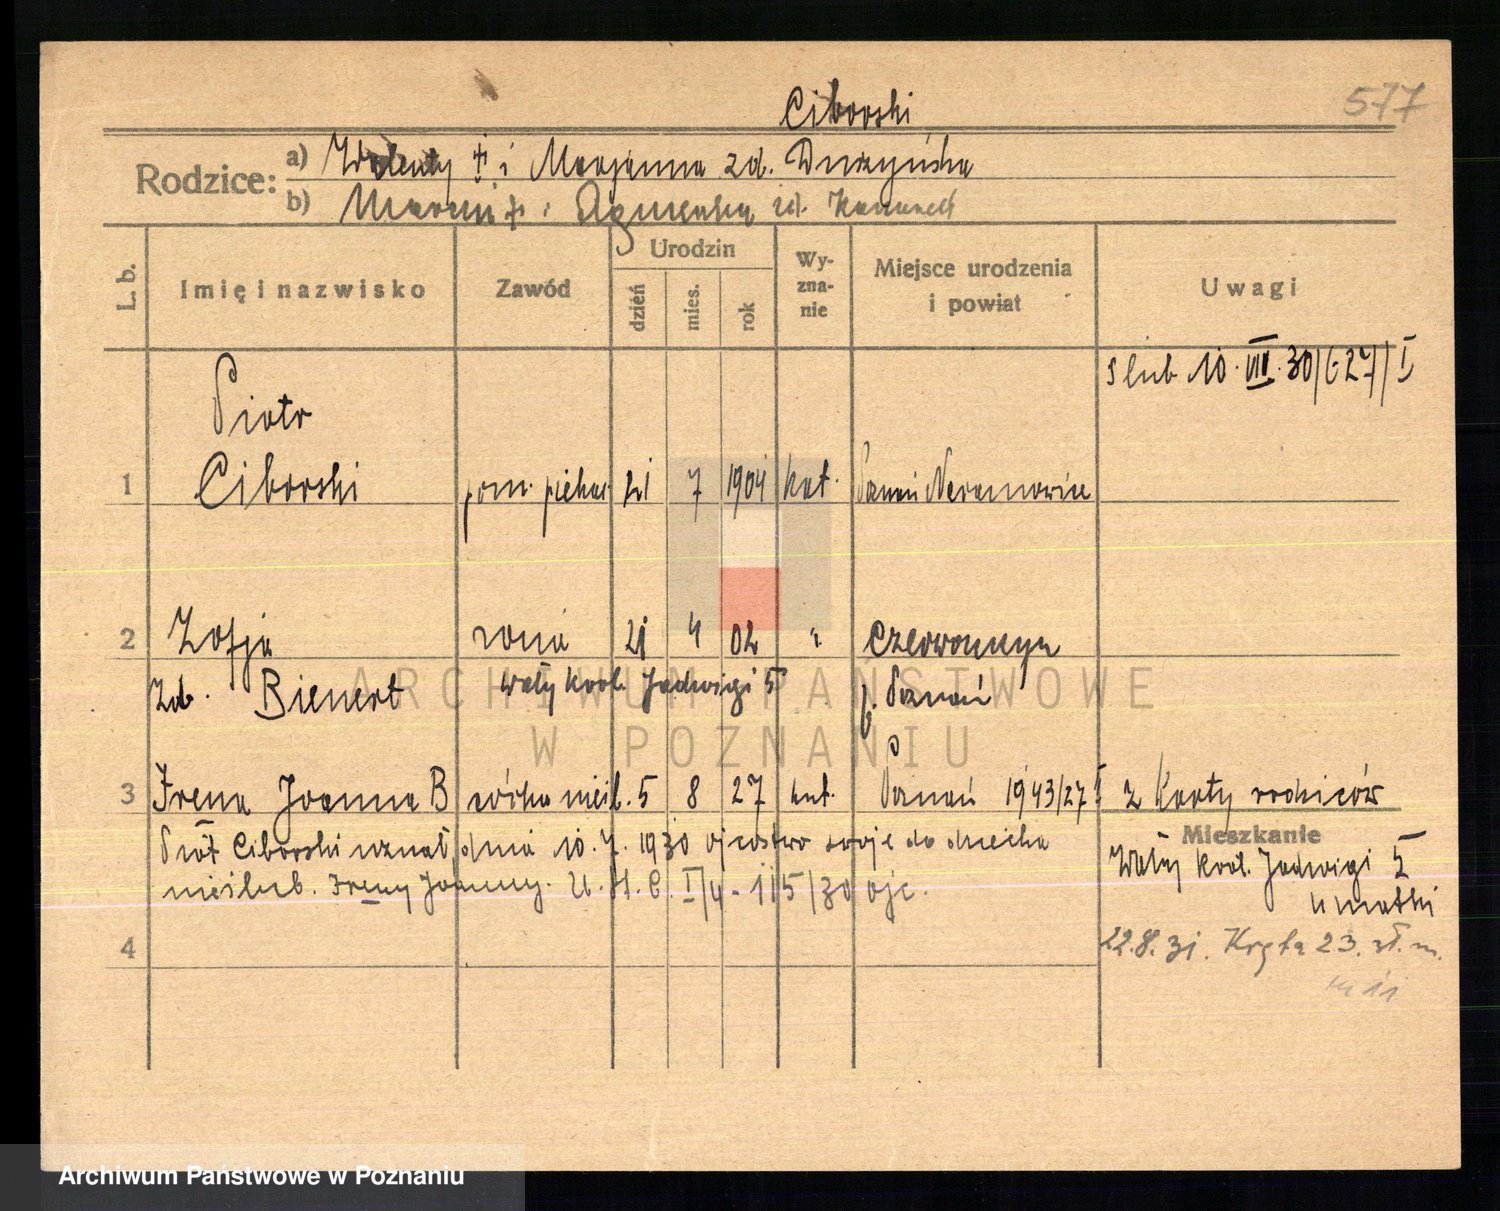 Ciborski
577
Rodzice: a) Walenty † i Marjanna zd. Duszyńska
b) Marcin † i Agnieszka zd.
L. b. Imię i nazwisko Zawód Urodzin dzień mies. rok Wy-zna-nie Miejsce urodzenia i powiat Uwagi
ślub 10. VIII. 30/627/I
Piotr
1 Ciborski pom. piekar. 21 7 1904 kat. Poznań Naramowice
2 Zofja żona 21 4 02 " Czerwonak
zd. Bienert Wały Król. Jadwigi 5 p. Poznań
3 Irena Joanna B córka nieśl. 5 8 27 kat. Poznań 1943/27 I z Karty rodziców
Mieszkanie
Piotr Ciborski uznał dnia 10. 7. 1930 ojcostwo swoje do dziecka
Wały Król. Jadwigi 5
nieślub. Ireny Joanny. U.S.C. I/4-115/30 ojc.
u matki
4
22.8.31. Kręta 23.
m 11
ARCHIWUM PAŃSTWOWE
W POZNANIU
Archiwum Państwowe w Poznaniu